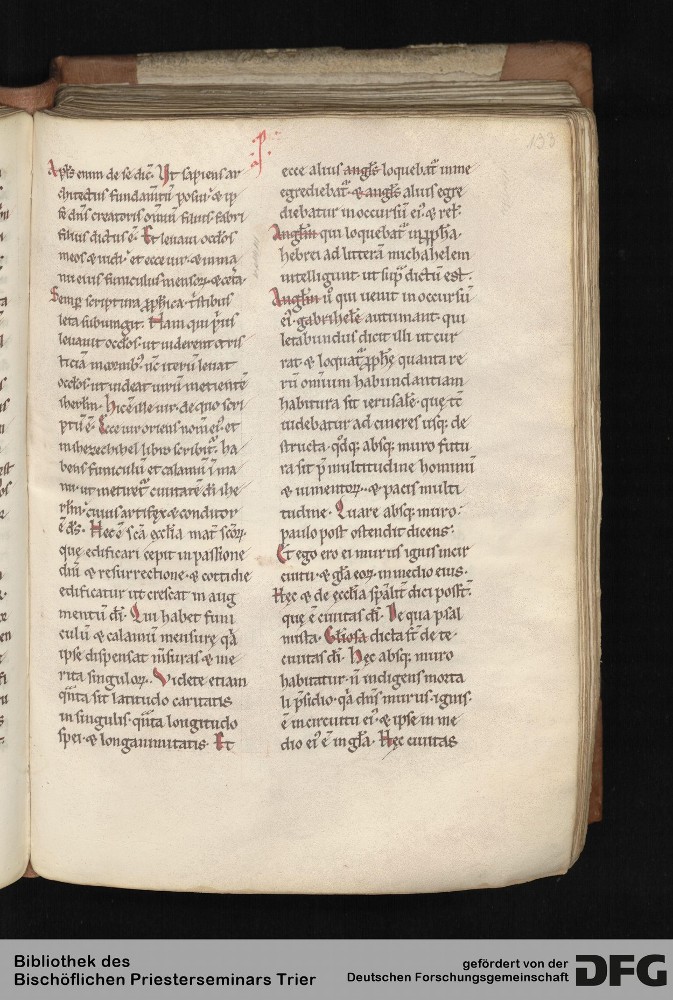 133
Apls enim de se dic. Ut sapiens ar
chitectus fundamtu posui. & ip
se dns creatoris omium filius fabri
filius dictus e. Et levavi oculos
meos & vidi. et ecce vir. & in ma
nu eius funiculus mensorum. & cetera.
Semp scriptura pphica tristibus
leta subiungit. Nam qui prius
levavit oculos. ut videret & tris
ticiam moveretur. nc iteru levat
oculos. ut videat viru metiente
iherlm. Hic e ille vir. de quo scri
ptu e. Ecce vir oriens nom ei. et
in ihezechihel libro scribitur. ha
bens funiculu et calamu i ma
nu. ut metiretur civitate di ihe
rlm. cuius artifex & conditor
e ds. Hec e sca ecclia mat scorum.
que edificari cepit in passione
dni & resurrectione. & cottidie
edificatur ut crescat in aug
mentu di. Qui habet funi
culu & calamu mensure. qa
ipse dispensat msuras & me
rita singulorum. Videte etiam
quta sit latitudo caritatis
in singulis. quta longitudo
spei. & longanimitatis. Et
ecce alius angls loquebat in me
egrediebat. & angls alius egre
diebatur in occursu ei. & rel.
Anglm qui loquebat in ppha.
hebrei ad littera michahelem
intelligunt. ut sup dictu est.
Anglm u qui venit in occursu
ei. gabrihele autumant. qui
letabundus dicit illi ut cur
rat & loquat pphe quanta re
ru omnium habundantiam
habitura sit ierusale. que tc
videbatur ad cineres usq; de
structa. qdq; absq; muro futu
ra sit p multitudine hominu
& iumentorum. & pacis multi
tudine. Quare absq; muro.
paulo post ostendit dicens.
Et ego ero ei murus ignis incir
cuitu. & gla eorum. in medio eius.
Hec & de ecclia spalit dici post.
que e civitas di. De qua psal
mista. Gliosa dicta st de te
civitas di. Hec absq; muro
habitatur. n indigens morta
li psidio. qa dns murus ignis.
e in circuitu ei. & ipse in me
dio ei e in gla. Hec civitas
Bibliothek des
Bischöflichen Priesterseminars Trier
gefördert von der
Deutschen Forschungsgemeinschaft
DFG